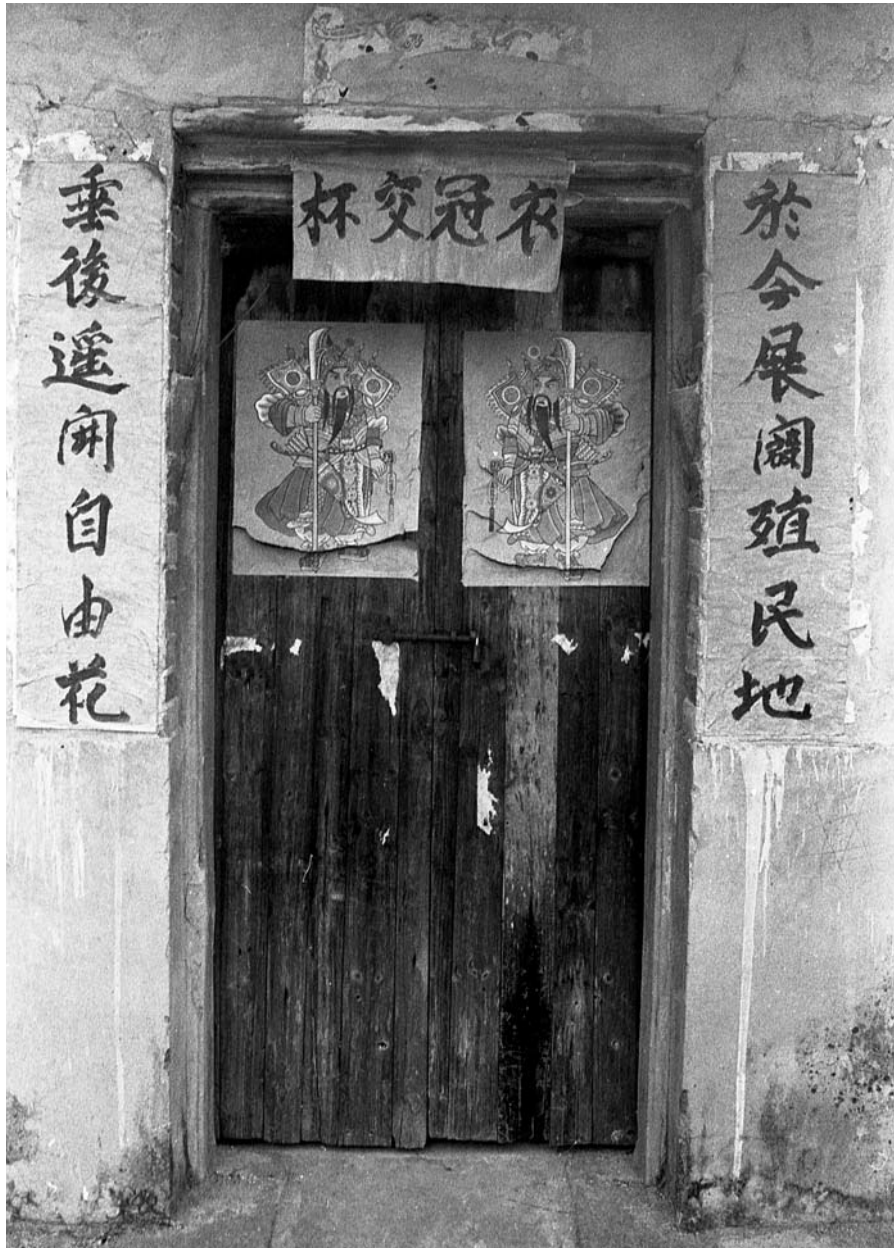 衣冠交杯
於今展闊殖民地
垂後遥開自由花